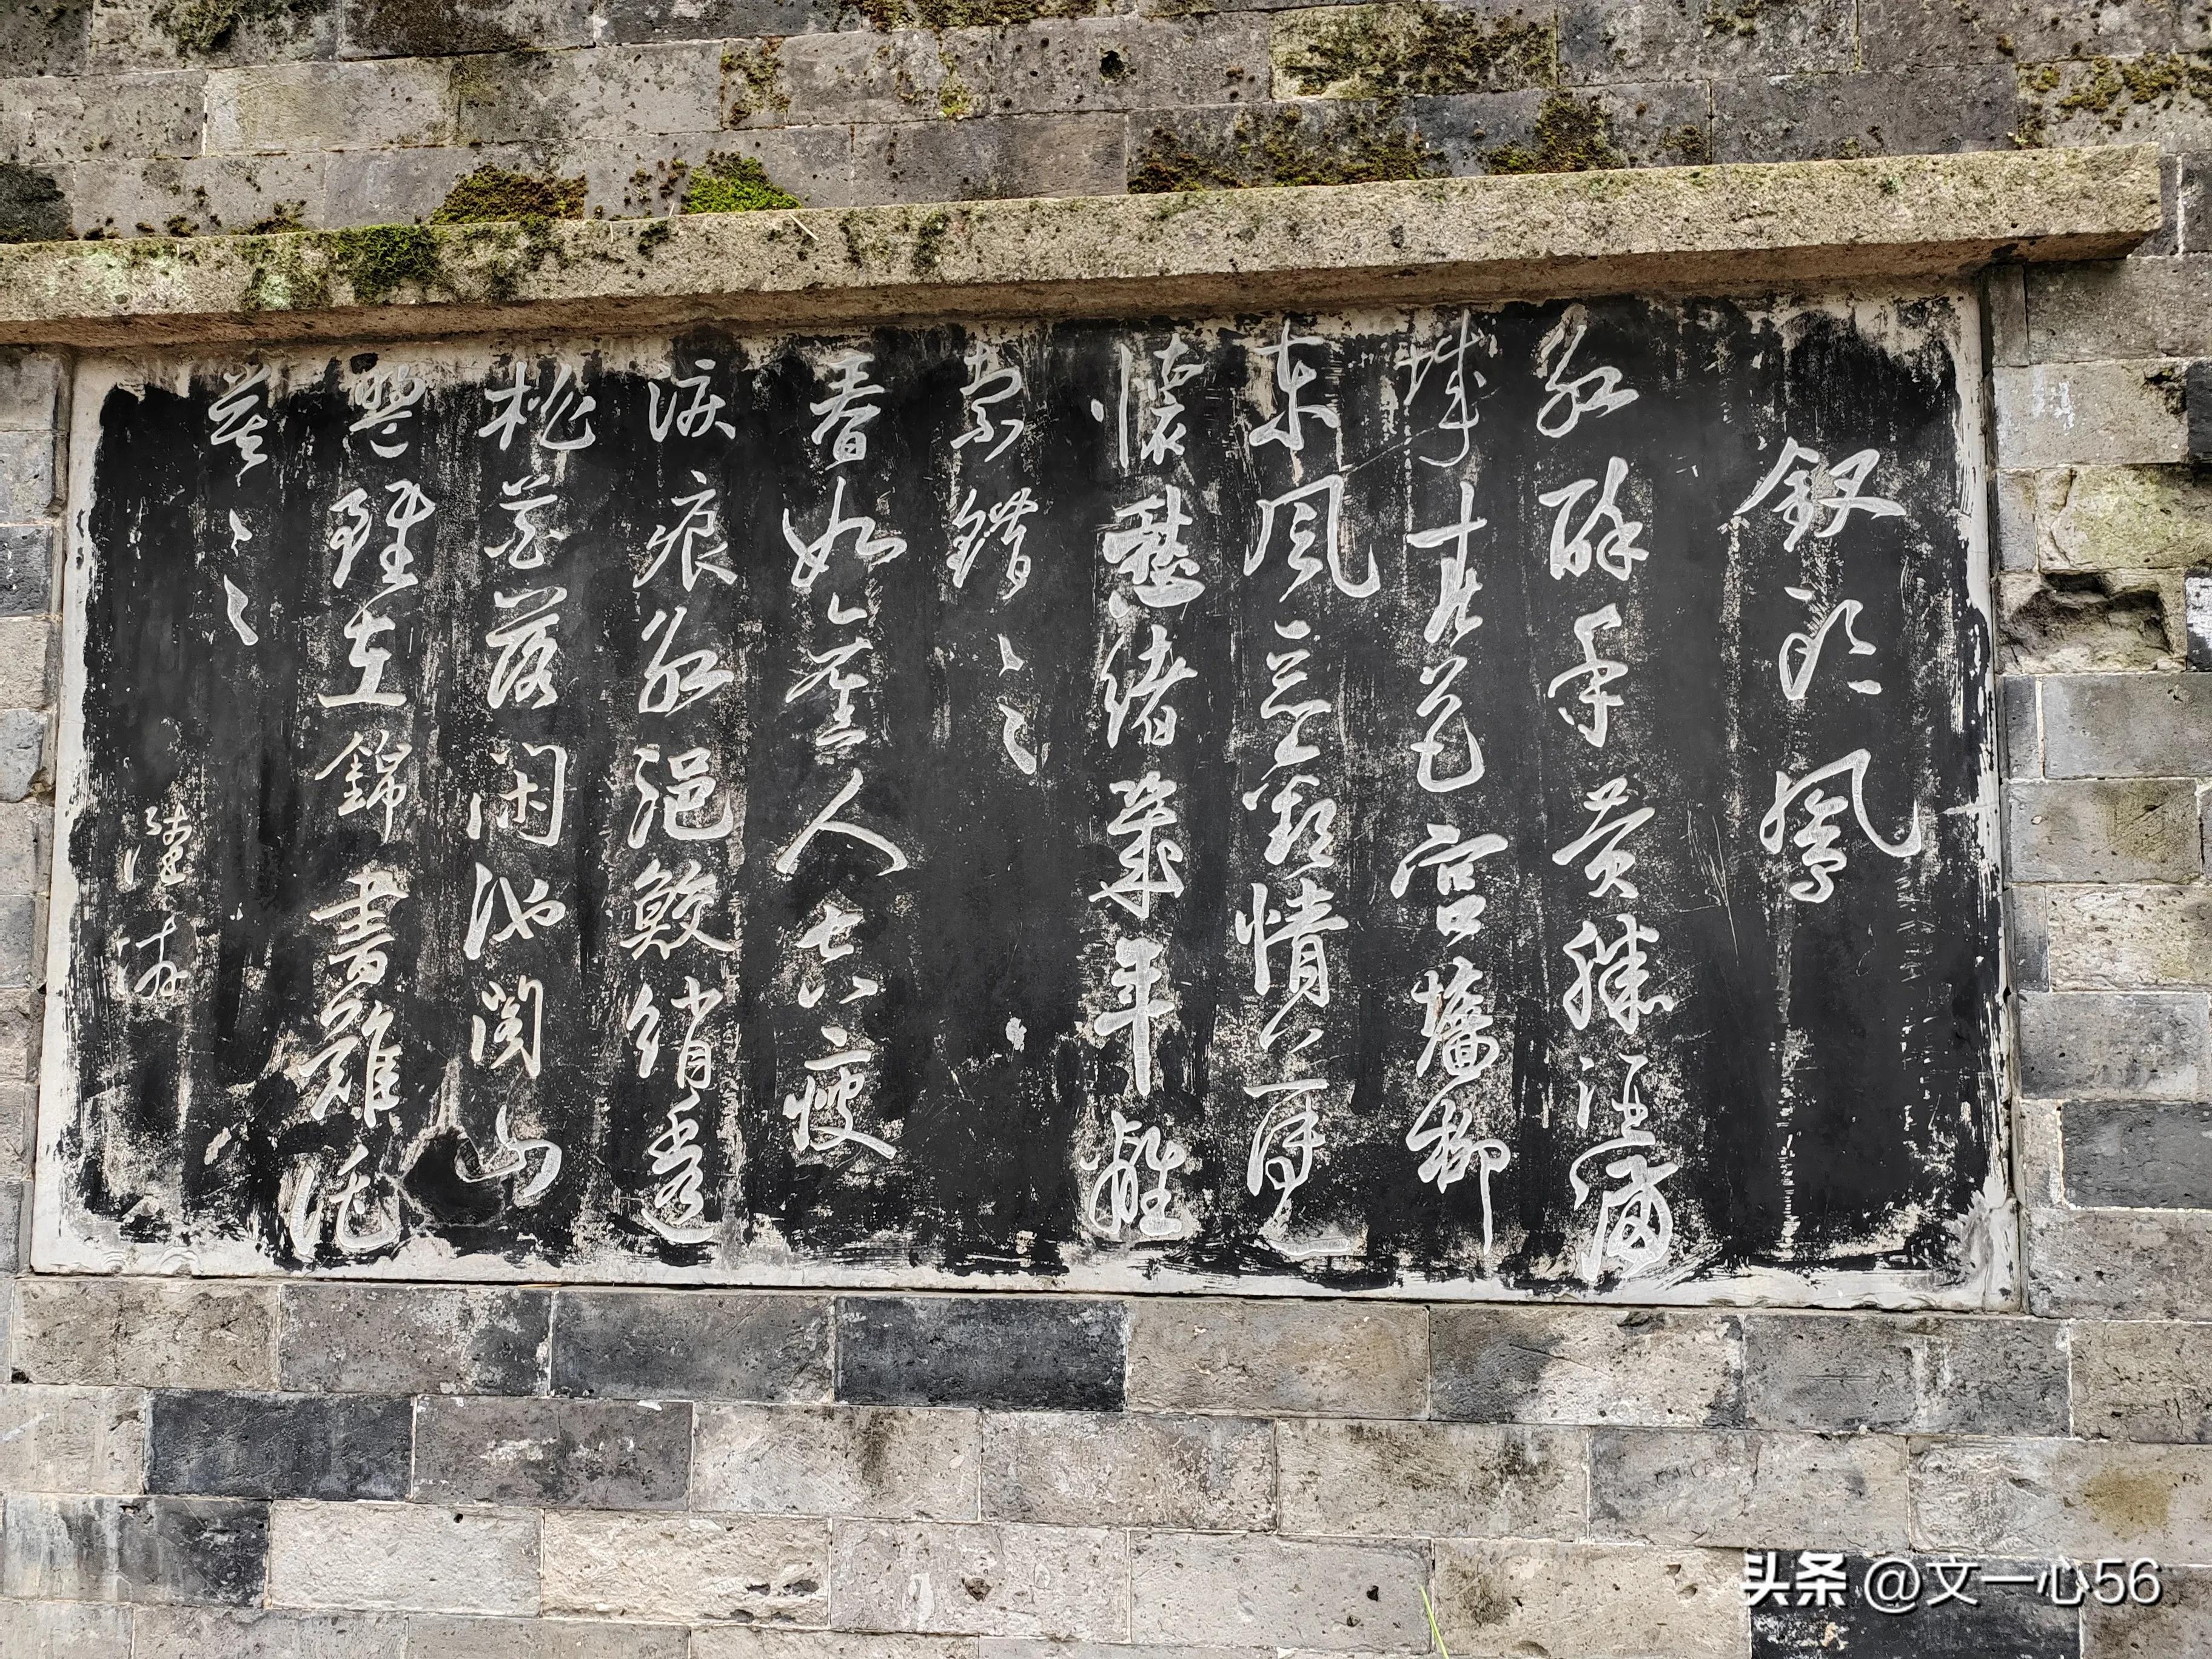 釵頭鳳
紅酥手黄縢酒滿
城春色宫墻柳
東風惡歡情薄一
懷愁緒幾年離
索錯々々
春如舊人空瘦
淚痕紅浥鮫綃透
桃花落閑池閣山
盟雖在錦書難託
莫々々
陸游
头条 @文一心56